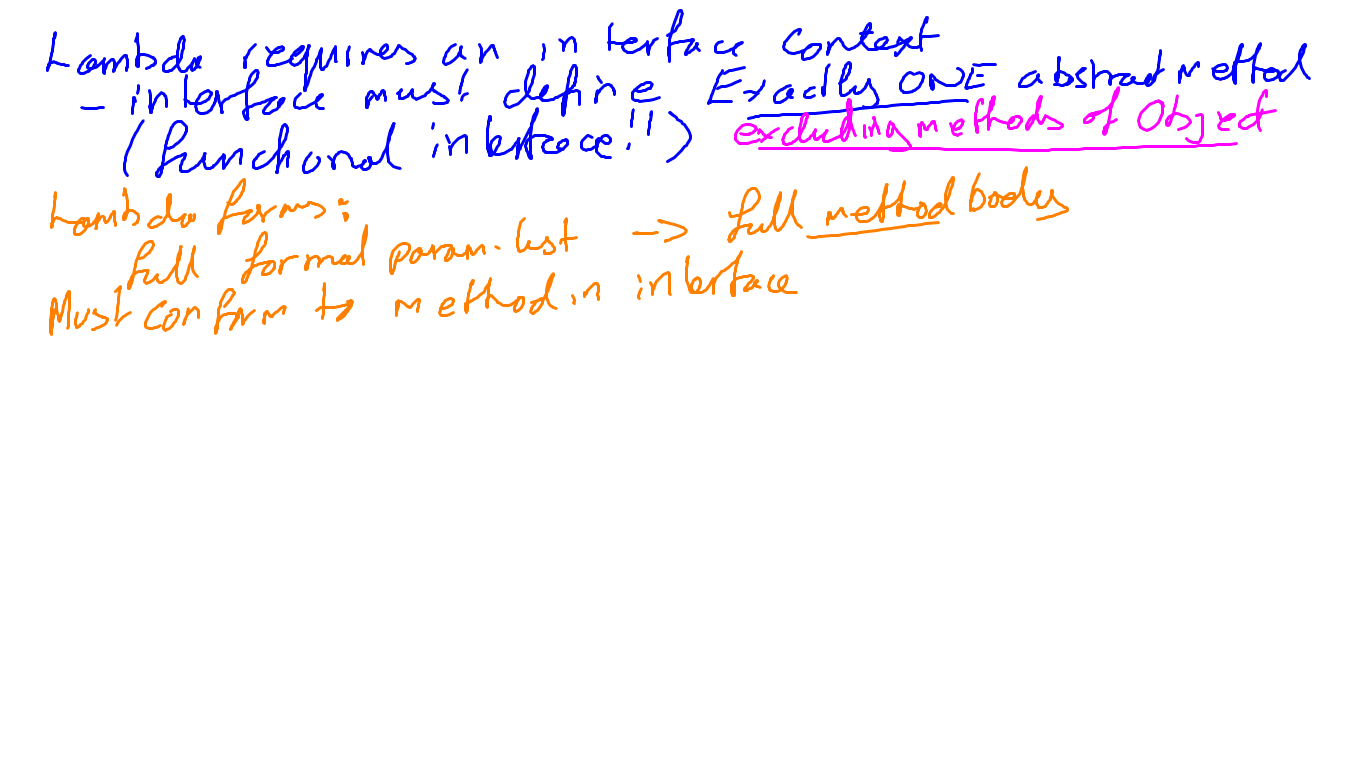 Lambda requires an interface context
- interface must define Exactly ONE abstract method
(functional interface!!) excluding methods of Object
Lambda forms:
full formal param. list -> full method body
Must conform to method in interface